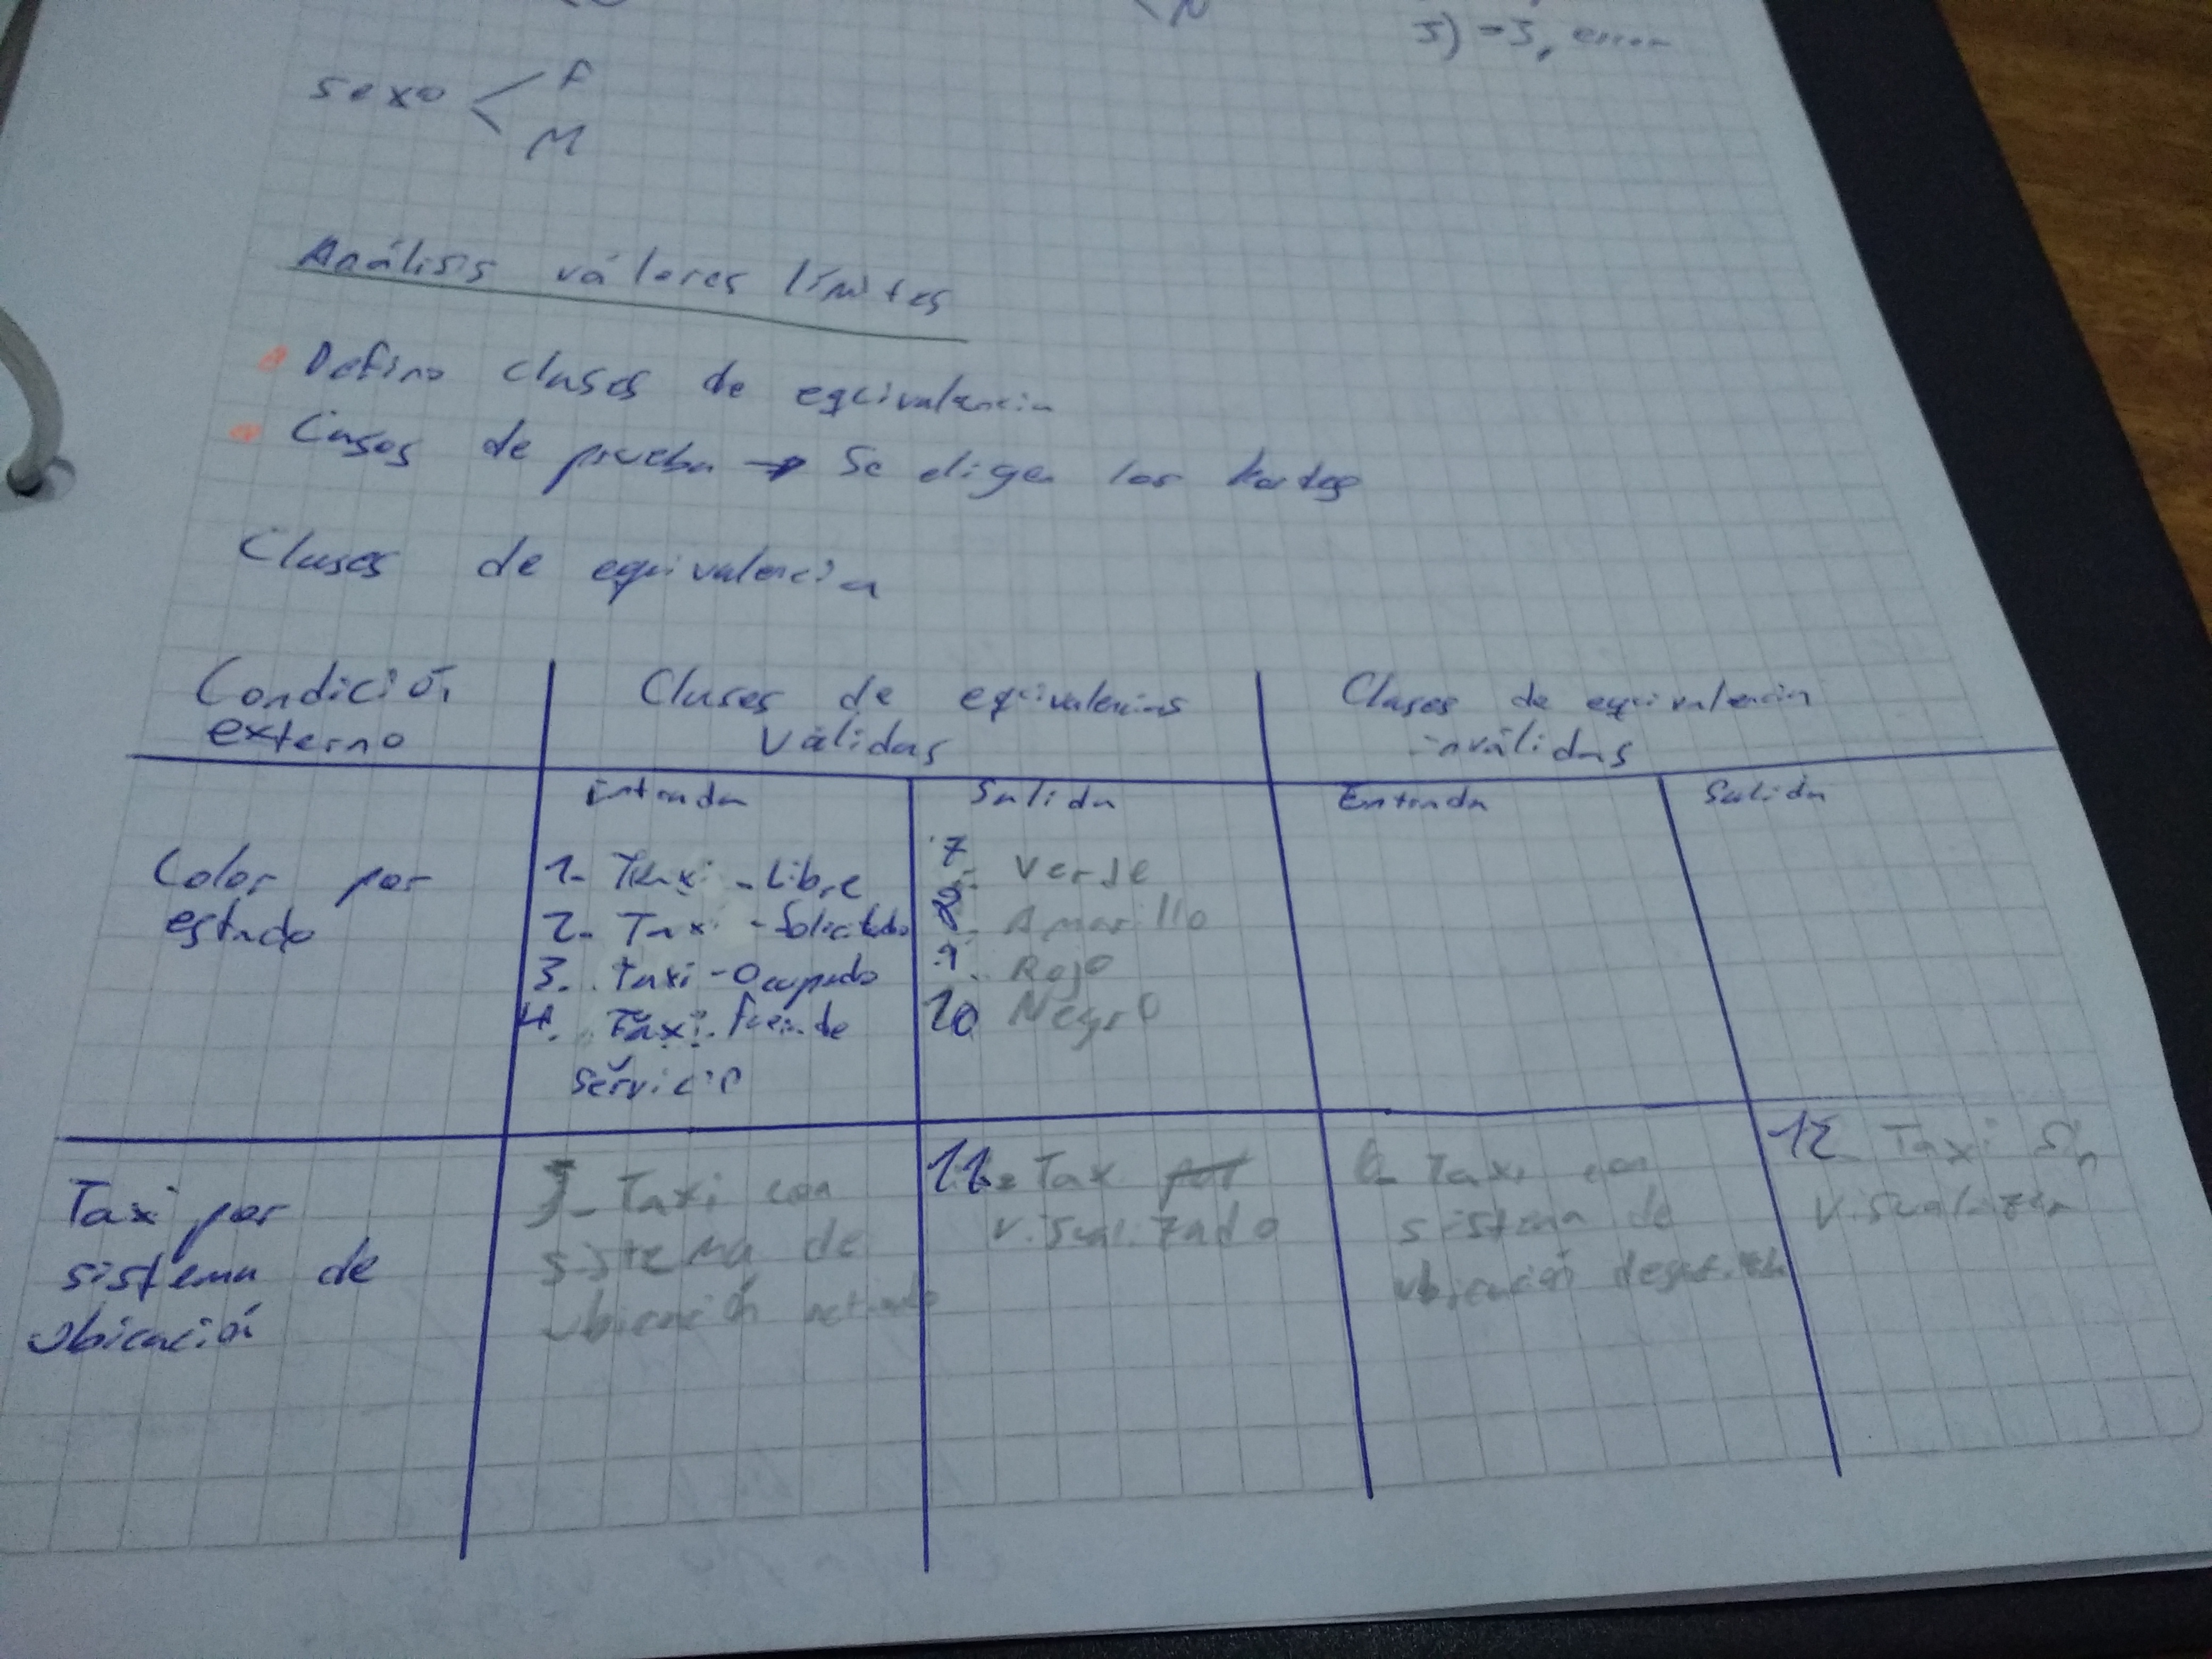 N
5) = 3, error
sexo F
M
Análisis válores límites
Defino clases de equivalencia
Casos de prueba → Se eligen los bordes
Clases de equivalencia
Condición
externo
Clases de equivalencias
Válidas
Clases de equivalencia
inválidas
Entrada
Salida
Entrada
Salida
Color por
estado
1- Taxi - Libre
2- Taxi - Solicitado
3. Taxi - Ocupado
4. Taxi fuera de
servicio
7. Verde
8. Amarillo
9. Rojo
10 Negro
Taxi por
sistema de
ubicación
5- Taxi con
sistema de
ubicación activado
11- Tax
visualizado
6- Taxi con
sistema de
ubicación
12- Taxi sin
visualizar